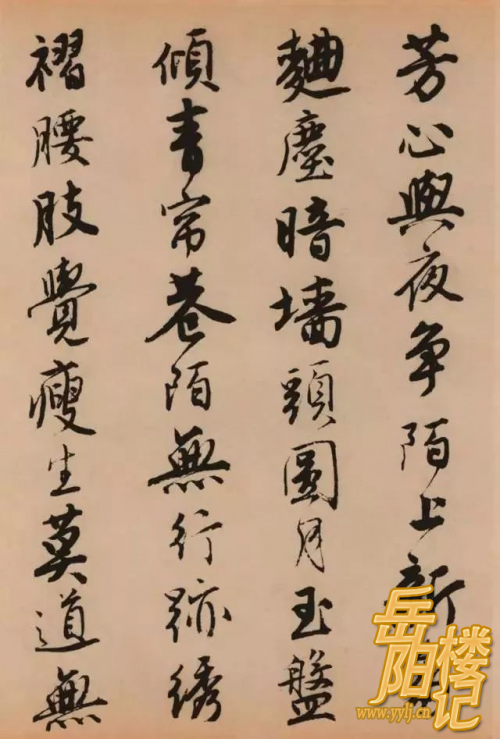 芳心與夜争陌上新
麯塵暗墻頭圓月玉盤
傾青帘巷陌無行跡绣
褶腰肢覺瘦生莫道無
岳阳楼记
www.yylj.cn